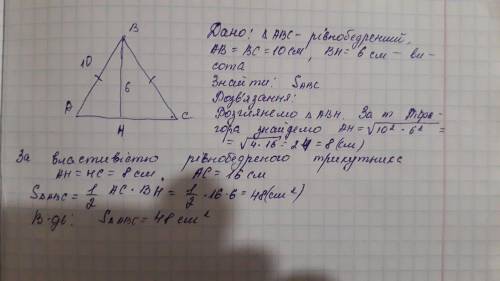 B
10
6
A
H
C
Дано: △ABC - рівнобедрений,
AB = BC = 10 см, BH = 6 см - ви-
сота
Знайти: S ABC
Розв'язання:
Розглянемо △ABH. За т. Піфа-
гора знайдемо AH = √10² - 6² =
= √4 · 16 = 2·4 = 8 (см)
За властивістю рівнобедреного трикутника
AH = HC = 8 см. AC = 16 см
S△ABC = 1/2 AC · BH = 1/2 · 16 · 6 = 48 (см²)
В-дь: S△ABC = 48 см²